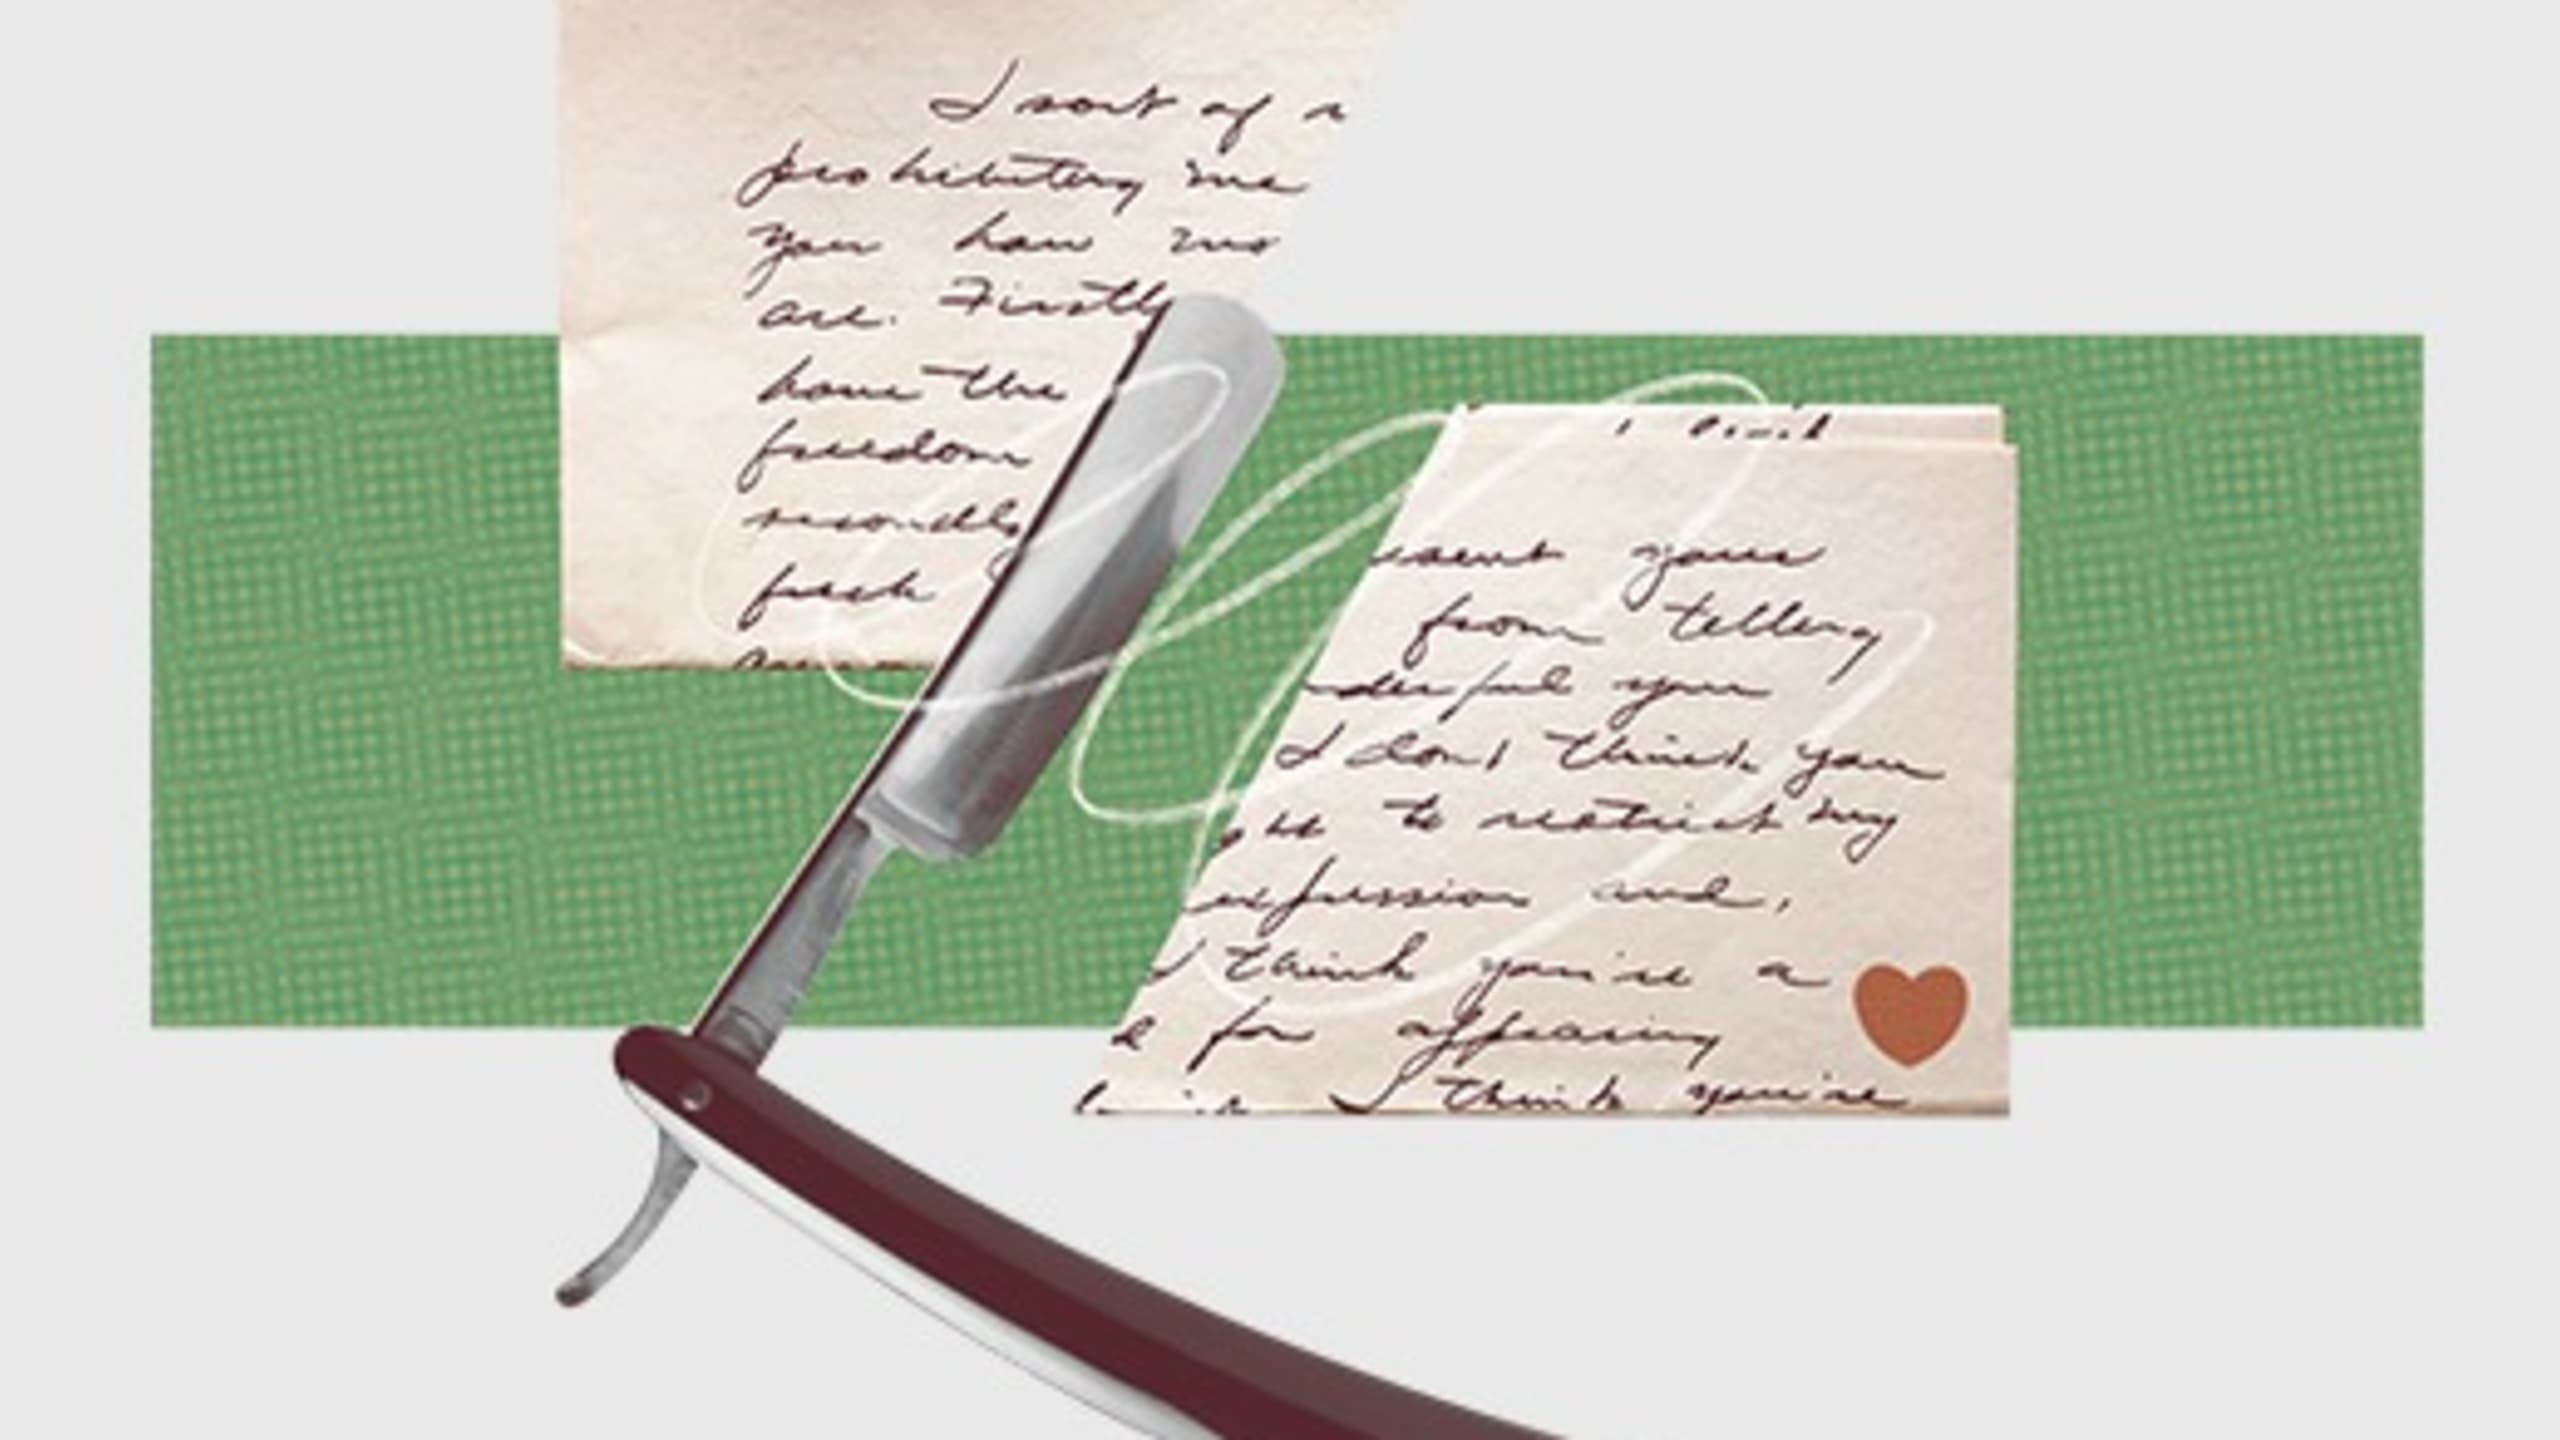 I sort of
prohibiting me
you how
are. Firstly
have the
freedom
secondly
fresh
yours
from telling
you
I don't think you
to restrict my
expression and,
think you're a
for appearing
I think you're